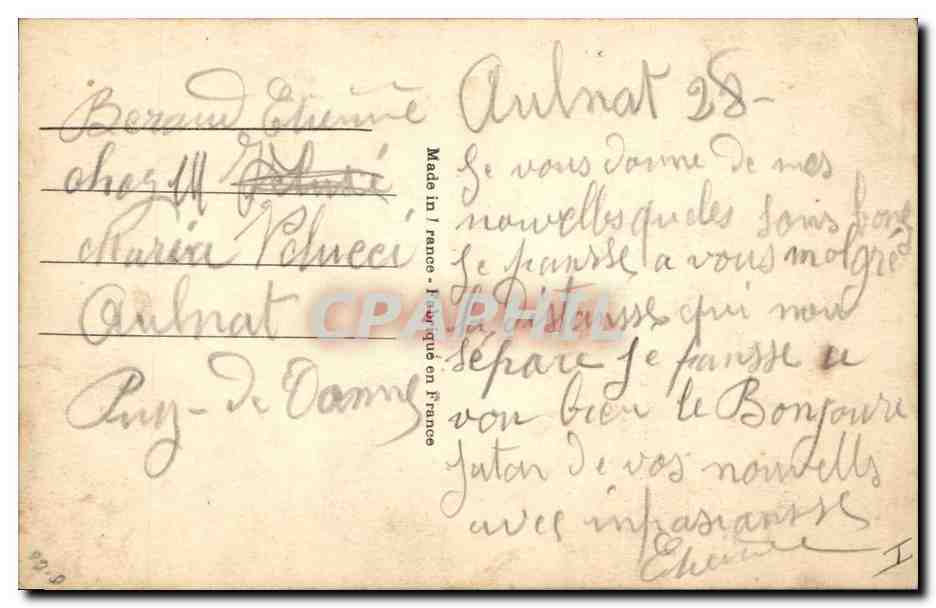 Beraud Etienne
chez M
Maria Velucci
Aulnat
Puy-de Domme
Made in France - Fabriqué en France
Aulnat 28-
Je vous donne de mes
nouvelles quelles sons bone
Je pansse a vous molgré
la distansse qui nou
sépare Je pansse a
vou bien le Bonjoure
Jatan de vos nouvells
avec inpasiansse
Etienne
CPAPHIL
I